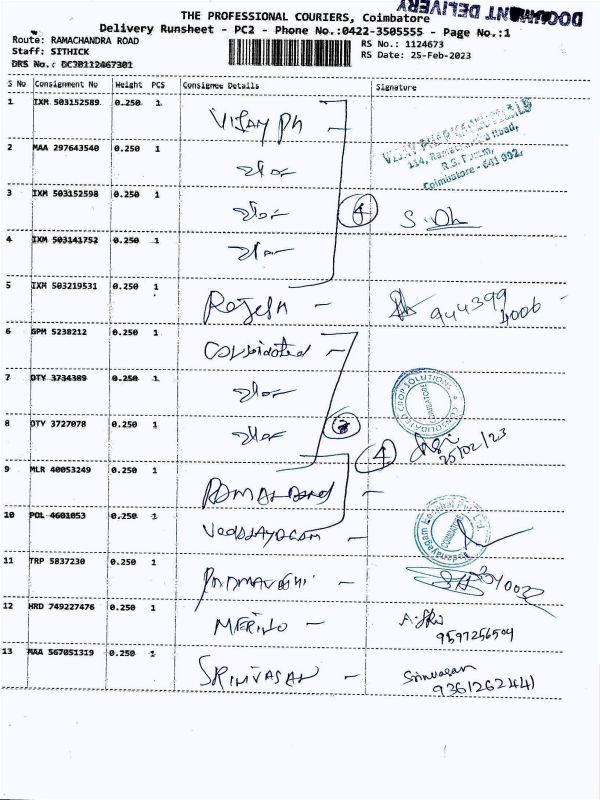 DOCUMENT DELIVERY
THE PROFESSIONAL COURIERS, Coimbatore
Delivery Runsheet - PC2 - Phone No.:0422-3505555 - Page No.:1
Route: RAMACHANDRA ROAD
RS No.: 1124673
Staff: SITHICK
RS Date: 25-Feb-2023
DRS No.: DCJ0112467301
S No Consignment No Weight PCS Consignee Details Signature
1 IXM 503152589 0.250 1 VIJAY Ph
VIJAY PHARMACEUTICALS
114, Ramachandra Road,
R.S. Puram,
Coimbatore - 641 002.
2 MAA 297643540 0.250 1
3 IXM 503152598 0.250 1
4
4 IXM 503141752 0.250 1
5 IXM 503219531 0.250 1 Rajesh
944399
4006
6 GPM 5238212 0.250 1 Consolidated
7 OTY 3734389 0.250 1
CONSOLIDATED CROP SOLUTIONS
COIMBATORE
8 OTY 3727078 0.250 1
4
25/02/23
9 MLR 40053249 0.250 1
10 POL 4601053 0.250 1
COIMBATORE
11 TRP 5837230 0.250 1
12 HRD 749227476 0.250 1 MERINO
9597256504
13 MAA 567051319 0.250 1 SRINIVASAN
Srinivasan
9361262441